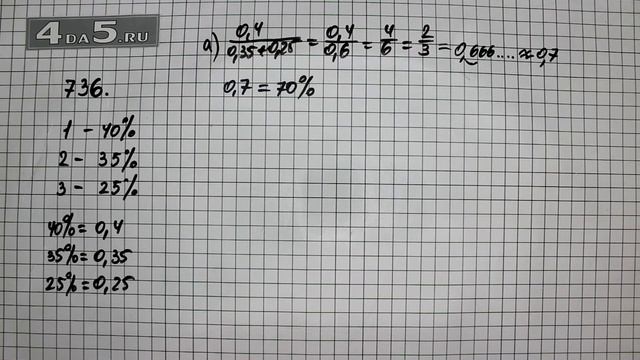 4 DA 5.RU
736.
1 - 40%
2 - 35%
3 - 25%
40% = 0,4
35% = 0,35
25% = 0,25
а) 0,4/(0,35+0,25) = 0,4/0,6 = 4/6 = 2/3 = 0,666.... ≈ 0,7
0,7 = 70%